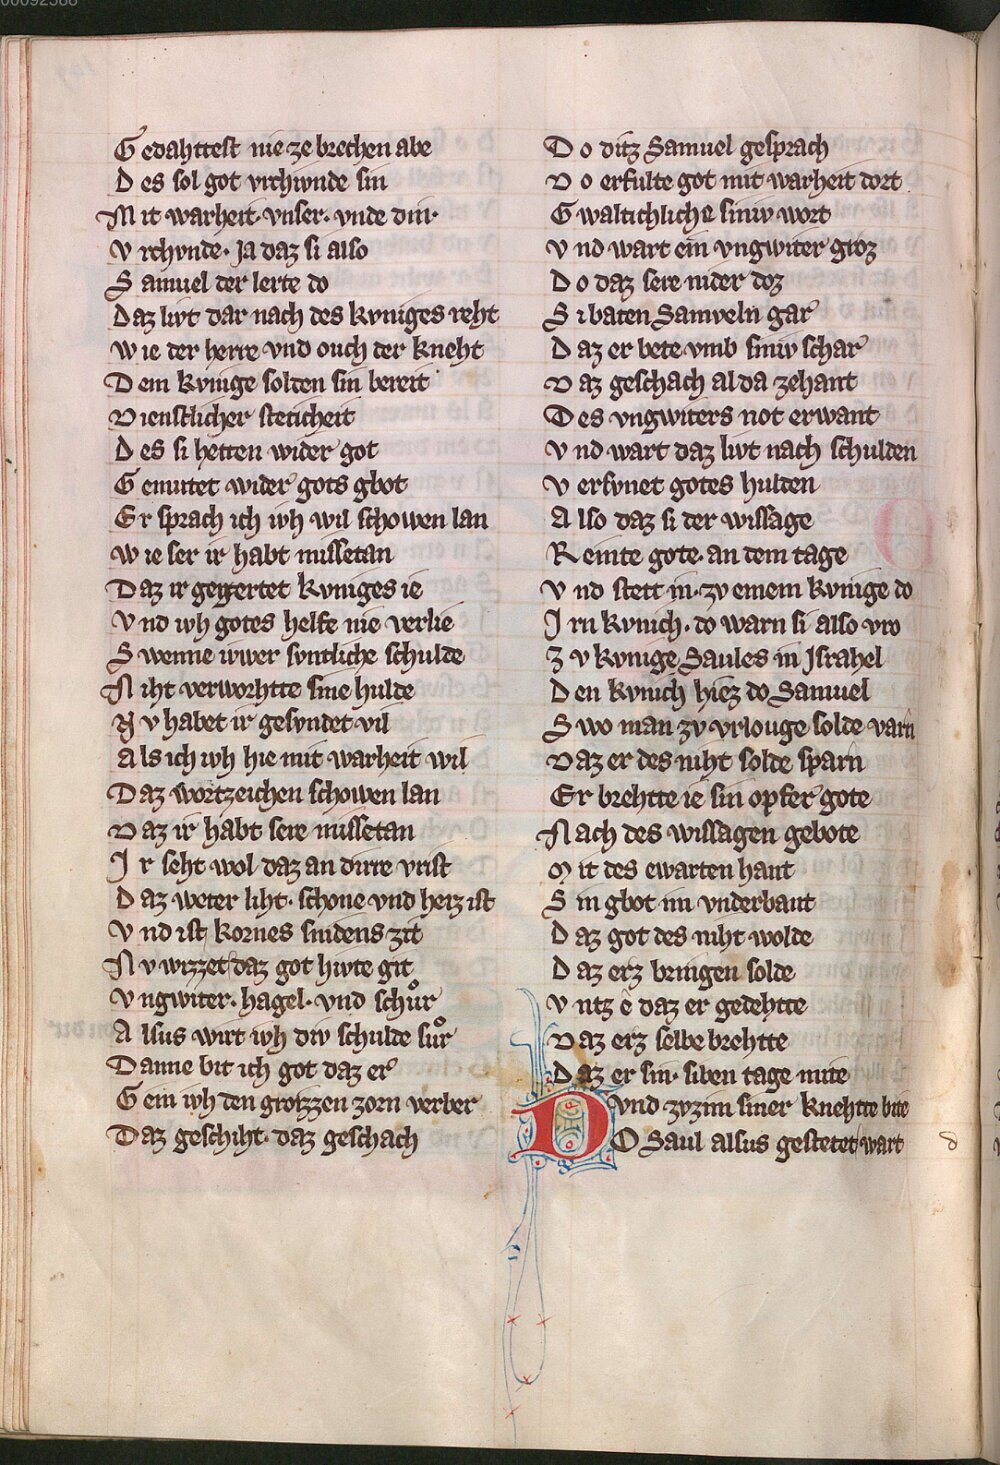 Gedahttest nie ze brechen abe
Des sol got vrchvnde sin
Mit warheit· vnser· vnde din·
Vrchvnde· Ja daz si also
Samuel der lerte do
Daz livt dar nach des kvniges reht
Wie der herre vnd ouch der kneht
Dem kvnige solten sin bereit
Dienstlicher steticheit
Des si hetten wider got
Gemutet wider gots gbot
Er sprach ich ivh wil schowen lan
Wie ser ir habt missetan
Daz ir gegertet kvniges ie
Vnd ivh gotes helfe nie verlie
Swenne iwer svntliche schulde
Niht verworhtte sine hulde
Nv habet ir gesvndet vil
Als ich ivh hie mit warheit wil
Daz wortzeichen schowen lan
Daz ir habt sere missetan
Ir seht wol daz an dirre vrist
Daz weter liht· schone vnd heiz ist
Vnd ist kornes snidens zit
Nv wizzet daz got hivte git
Vngwiter· hagel· vnd schůr
Alsus wirt ivh div schulde sůr
Danne bit ich got daz er
Gein ivh den grozzen zorn verber
Daz geschiht· daz geschach
Do ditz Samuel gesprach
Do erfulte got mit warheit dort
Gwaltichliche siniv wort
Vnd wart ein vngwiter groz
Do daz sere nider doz
Si baten Samveln gar
Daz er bete vmb siniv schar
Daz geschach al da zehant
Des vngwiters not erwant
Vnd wart daz livt nach schulden
Versvnet gotes hulden
Also daz si der wissage
Reinte gote· an dem tage
Vnd stett in· zv einem kvnige do
Irn kvnich· do warn si also vro
Zv kvnige Saules in Israhel
Den kvnich hiez do Samuel
Swo man zv vrlouge solde varn
Daz er des niht solde sparn
Er brehtte ie sin opfer gote
Nach des wissagen gebote
Mit des ewarten hant
Sin gbot im vnderbant
Daz got des niht wolde
Daz erz bringen solde
Vntz e daz er gedehtte
Daz erz selbe brehtte
Daz er sin· siben tage mite
Vnd zvzim siner knehtte bite
DO Saul alsus gestetet wart
d